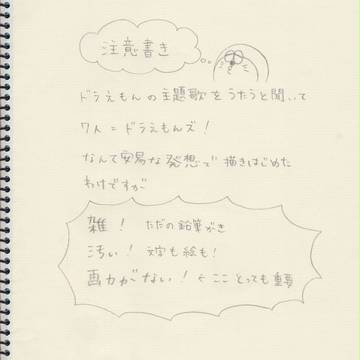 注意書き
ドラえもんの主題歌をうたうと聞いて
7人=ドラえもんズ!
なんて安易な発想で描きはじめた
わけですが
雑! ただの鉛筆がき
汚い! 文字も絵も!
画力がない! ←ここ とっても重要